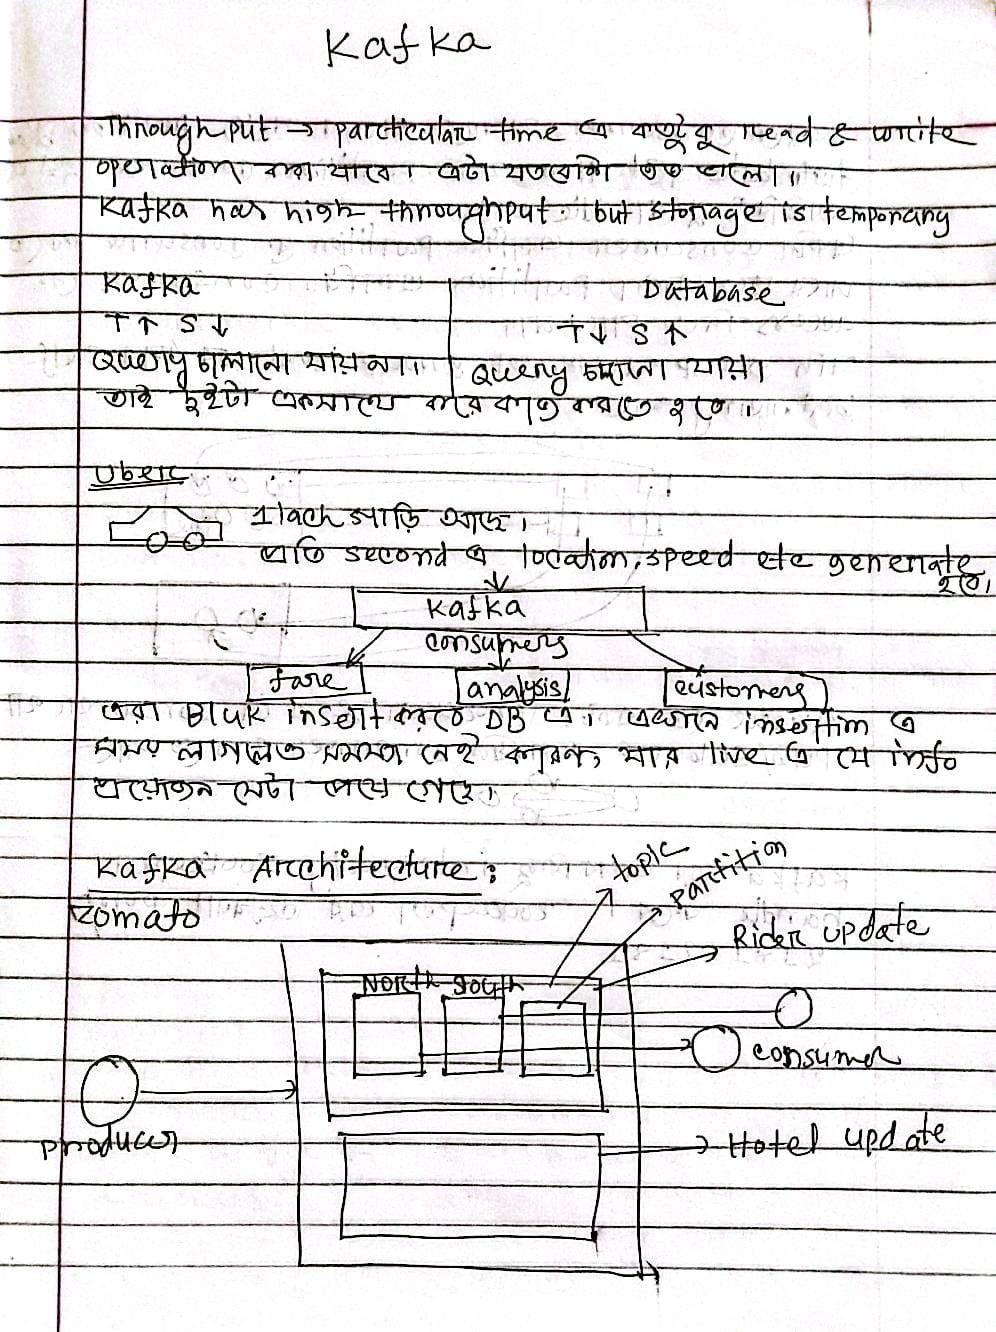 Kafka
Throughput → particular time এ কতটুকু read & write
operation করা যাবে। এটা যতবেশি তত ভালো।
Kafka has high throughput but storage is temporary
Kafka
Database
T↑ S↓
T↓ S↑
Query চালানো যায় না।
Query চালানো যায়।
তাই দুইটা একসাথে করে কাজ করতে হবে।
Uber
1 lach গাড়ি আছে।
প্রতি second এ location, speed etc generate
হবে।
Kafka
consumers
fare
analysis
customers
এরা Bluk insert করবে DB এ। এখানে insertion এ
সময় লাগলেও সমস্যা নেই কারণ, যার live এ যে info
প্রয়োজন সেটা পেয়ে গেছে।
Kafka Architecture:
topic
partition
zomato
Rider update
North South
consumer
producer
Hotel update